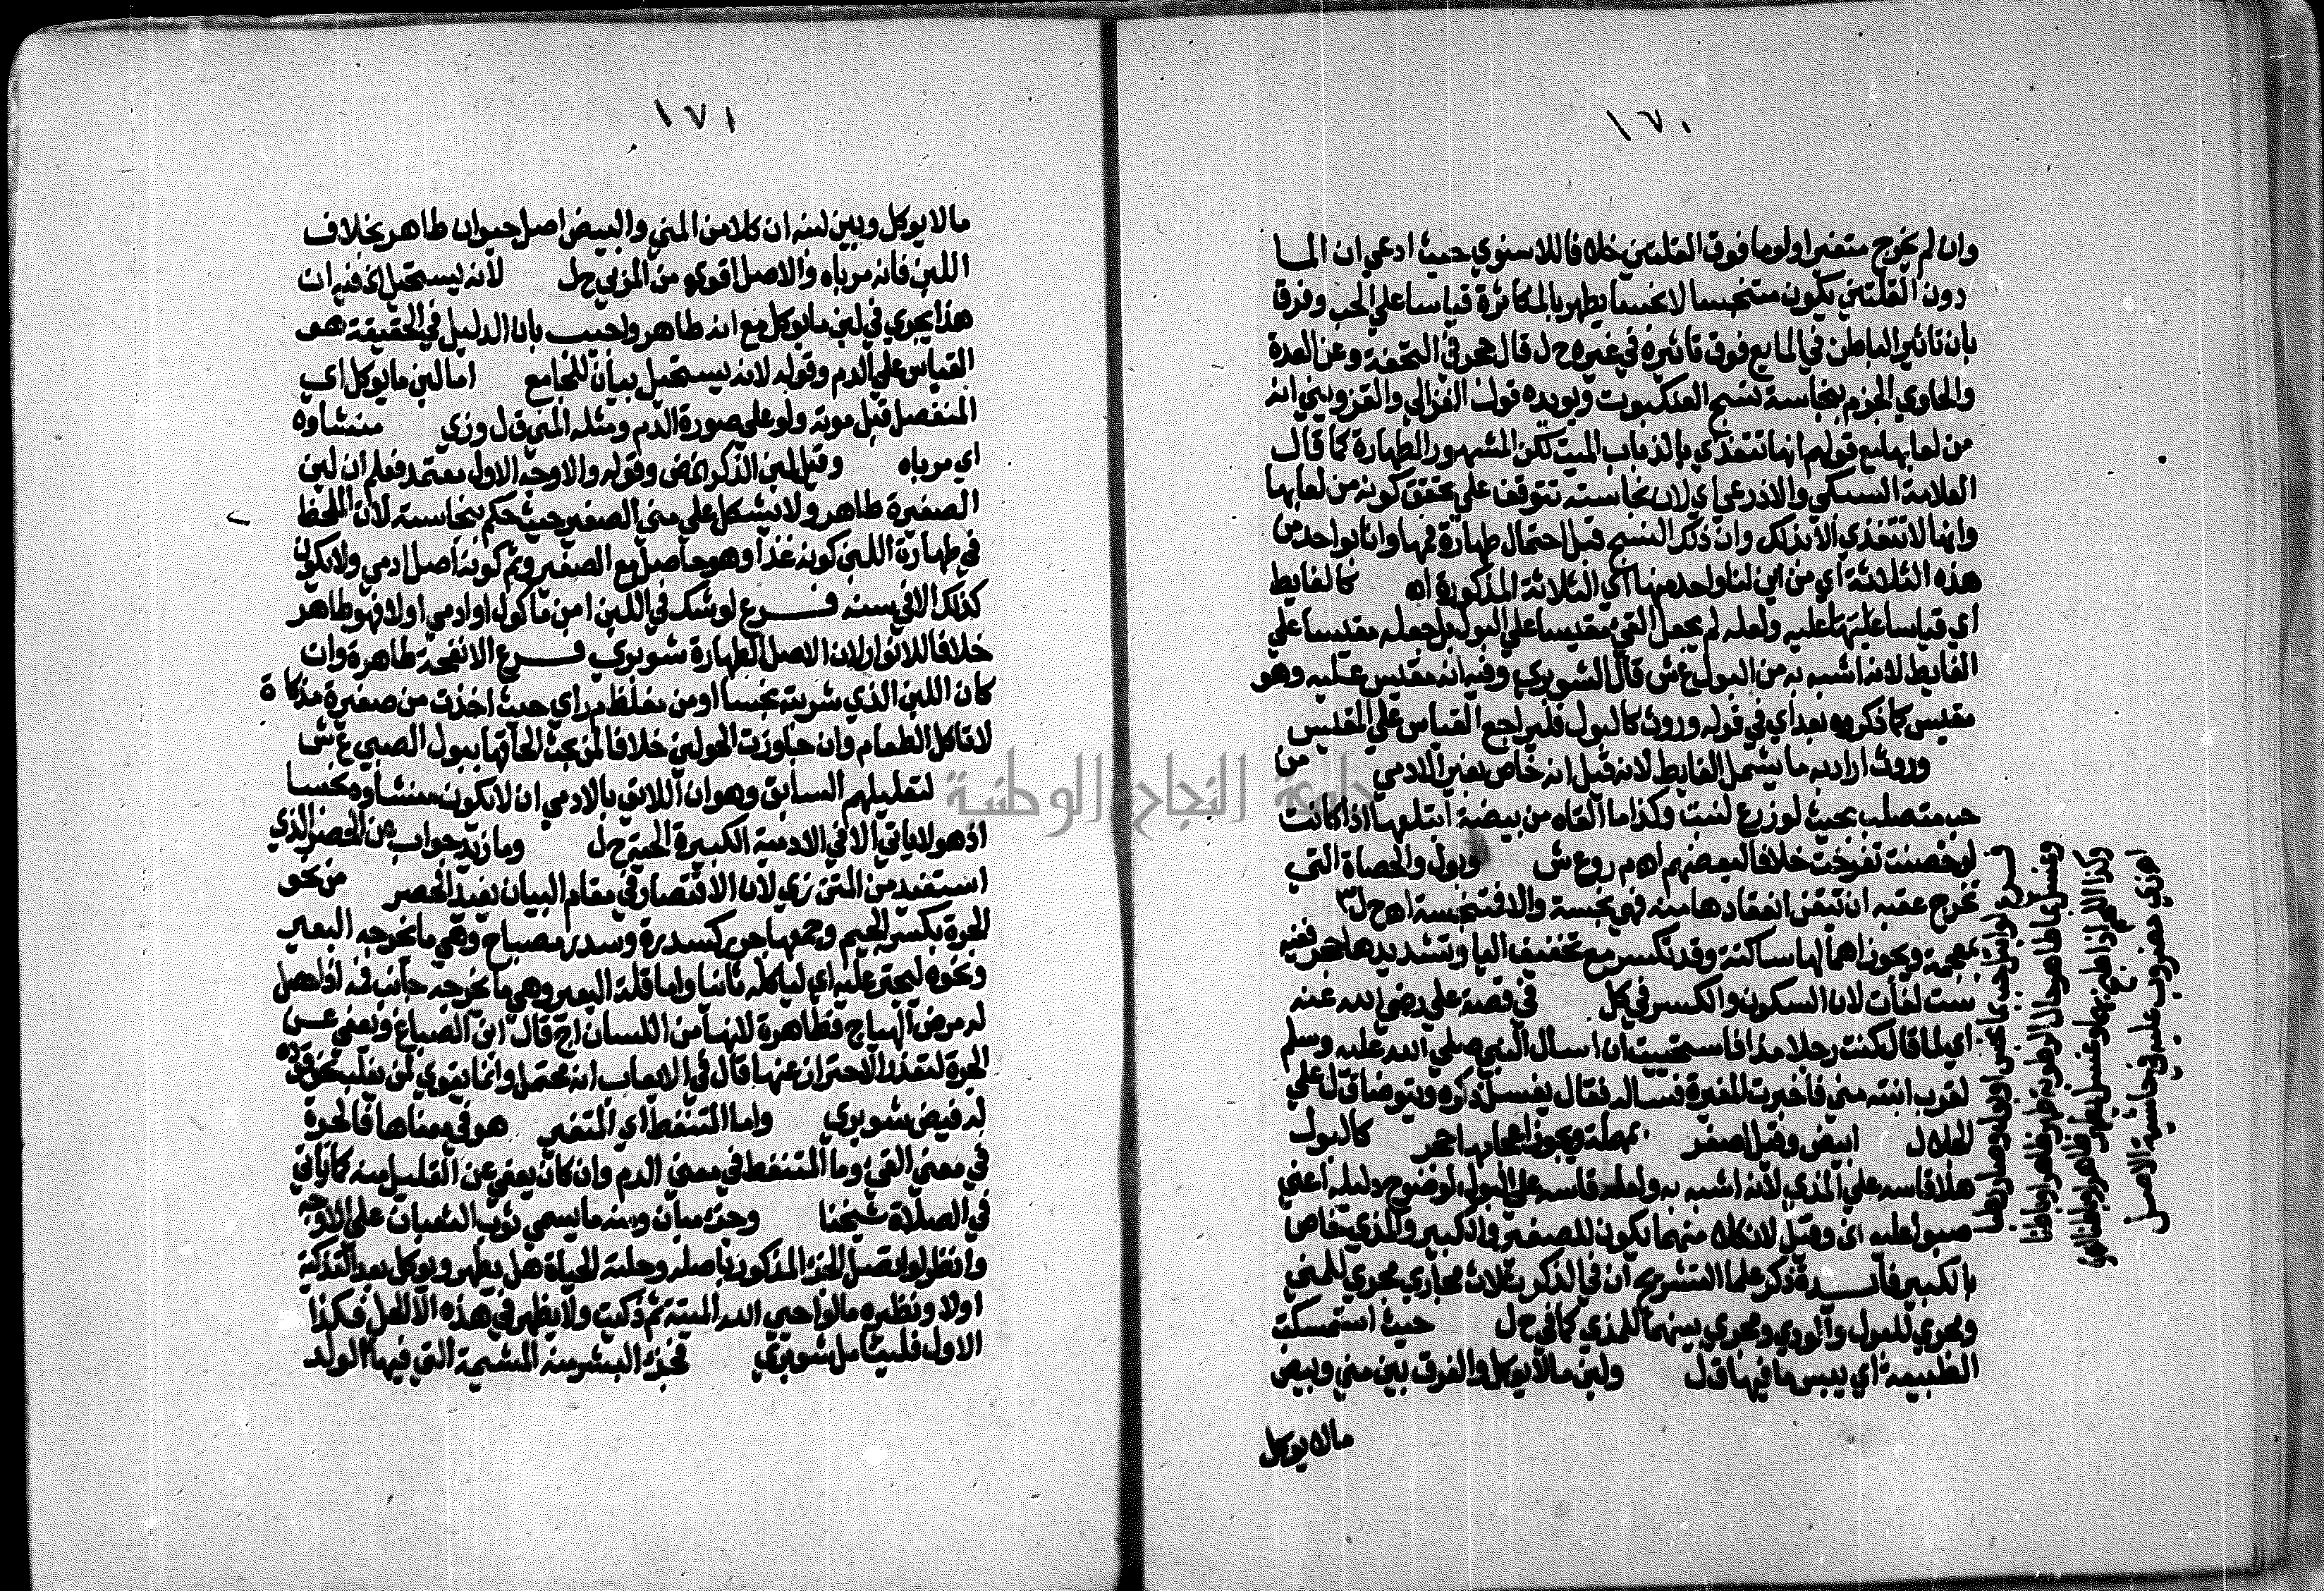 ١٧٠
وان لم يخرج متغيرا ولو ما فوق القلتين خلافا للاسنوي حيث ادعي ان الما
دون القلتين يكون متنجسا لا نجسا يطهر بالمكاثرة قياسا علي الحب وفرق
بان تاثير الباطن في المايع فوق تاثيره في غيره ح ل قال حجر في التحفة وعن العدة
والحاوي الجزم بنجاسة نسج العنكبوت ويويده قول الغزالي والقزويني انه
من لعابها مع قولهم انها تتغذي بالذباب الميت لكن المشهور الطهارة كما قال
العلامة السبكي والاذرعي اي لان نجاسته تتوقف علي تحقق كونه من لعابها
وانها لا تتغذي الا بذلك وان ذلك النسج قبل احتمال طهارة فمها وانا بواحد من
هذه الثلاثة اي من اين لنا واحد منها اي الثلاثة المذكورة اه كالغايط
اي قياسا عليه ولعله لم يجعل القي مقيسا علي البول بل جعله مقيسا علي
الغايط لانه اشبه به من البول ع ش قال الشوبري وفيه انه مقيس عليه وهو
مقيس كما ذكروه بعد اي في قوله وروث كالبول فليراجع القياس علي المقيس
وروث اراد به ما يشمل الغايط لانه قيل انه خاص بغير الادمي من
حب متصلب بحيث لو زرع لنبت وكذا ما القاه من بيضة ابتلعها اذا كانت
لو حضنت تفرخت خلافا لبعضهم اه م ر و ع ش وبول والحصاة التي
تخرج عقبه ان تيقن انعقادها منه فهي نجسة والا فمتنجسة اه ح ل
بمعجمة ويجوز اهمالها ساكنة وقد تكسر مع تخفيف اليا وتشديدها ففيه
ست لغات لان السكون والكسر في كل في قصة علي رضي الله عنه
اي لما قال كنت رجلا مذا فاستحييت ان اسال النبي صلي الله عليه وسلم
لقرب ابنته مني فاخبرت المغيرة فساله فقال يغسل ذكره ويتوضا ق ل علي
الجلال ابيض وقيل اصفر بمهملة ويجوز اعجامها كالبول
هلا قاسه علي المذي لانه اشبه به ولعله قاسه علي البول لوضوح دليله اعني
صبوا عليه الخ وقيل لان كلا منهما يكون للصغير والكبير والمذي خاص
بالكبير فائدة ذكر علما التشريح ان في الذكر ثلاث مجاري مجري للمني
ومجري للبول والودي ومجري بينهما للمذي كما في ح ل حيث استمسكت
الطبيعة اي يبس ما فيها ق ل ولبن ما لا يوكل والفرق بين مني وبيض
ما لا يوكل
وكذا اللبن
اه زي مضروب عليه في حاشية الاصل
١٧١
ما لا يوكل وبين لبنه ان كلا من المني والبيض اصل حيوان طاهر بخلاف
اللبن فانه مرباه والاصل اقوي من المربي ح ل لانه يستحيل الخ فيه ان
هذا يجري في لبن ما يوكل مع انه طاهر واجيب بان الدليل في الحقيقة هو
القياس علي الدم وقوله لانه يستحيل بيان للجامع اما لبن ما يوكل اي
المنفصل قبل موته ولو علي صورة الدم ومثله المني ق ل وزي منشاوه
اي مرباه وقيل لبن الذكر نجس وقوله والاوجه الاول معتمد فعلم ان لبن
الصغيرة طاهر ولا يشكل علي مني الصغير حيث حكم بنجاسته لان الملحظ
في طهارة اللبن كونه غذا وهو حاصل مع الصغير وثم كونه اصل ادمي ولا يكون
كذلك الا في سنه فــرع لو شك في اللبن امن ماكول او ادمي او لا فهو طاهر
خلافا للانوار لان الاصل الطهارة شوبري فــرع الانفحة طاهرة وان
كان اللبن الذي شربته نجسا او من مغلظ م ر اي حيث اخذت من صغيرة مذكاة
لا تاكل الطعام وان جاوزت الحولين خلافا لمن بحث الحاقها ببول الصبي ع ش
لتعليلهم السابق وهو ان اللائق بالادمي ان لا يكون منشاوه نجسا
اذ هو لا ياتي الا في الادمية الكبيرة الحية ح ل وما زيد جواب عن الحصر الذي
استفيد من المتن زي لان الاقتصار في مقام البيان يفيد الحصر من نحو
الجرة بكسر الجيم وجمعها جرر كسدرة وسدر مصباح وهي ما يخرجه البعير
ونحوه ليجتر عليه اي لياكله ثانيا واما قلة البعير وهي ما يخرجه جانب فمه اذا حصل
له مرض الهياج فطاهرة لانها من اللسان اج قال ابن الصباغ ويعفي عن
الجرة لتعذر الاحتراز عنها قال في الايعاب انه محتمل وانما يقوي لمن
له فيض شوبري واما المتنفط اي المتغير هو في معناها فالجرة
في معني القي وما المتنفط في معني الدم وان كان يعفي عن القليل منه كما ياتي
في الصلاة شيخنا وجزء مبان ومنه ما يسمي ثوب الثعبان علي الاوجه
وانظر لو اتصل الجزء المذكور باصله وحلته الحياة هل يطهر ويوكل بعد التذكية
اولا ونظيره ما لو احيي الله الميتة ثم ذكيت ولا يظهر في هذه الا الحل فكذا
الاول فليتامل شوبري فجزء البشر منه المشيمة التي فيها الولد
جامعة النجاح الوطنية